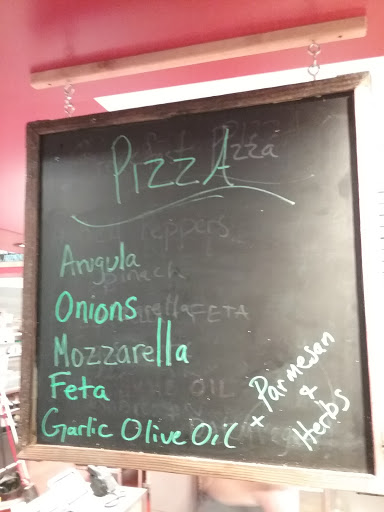 Pizza
Arugula
Onions
Mozzarella
Feta
Garlic Olive Oil + Parmesan
& Herbs